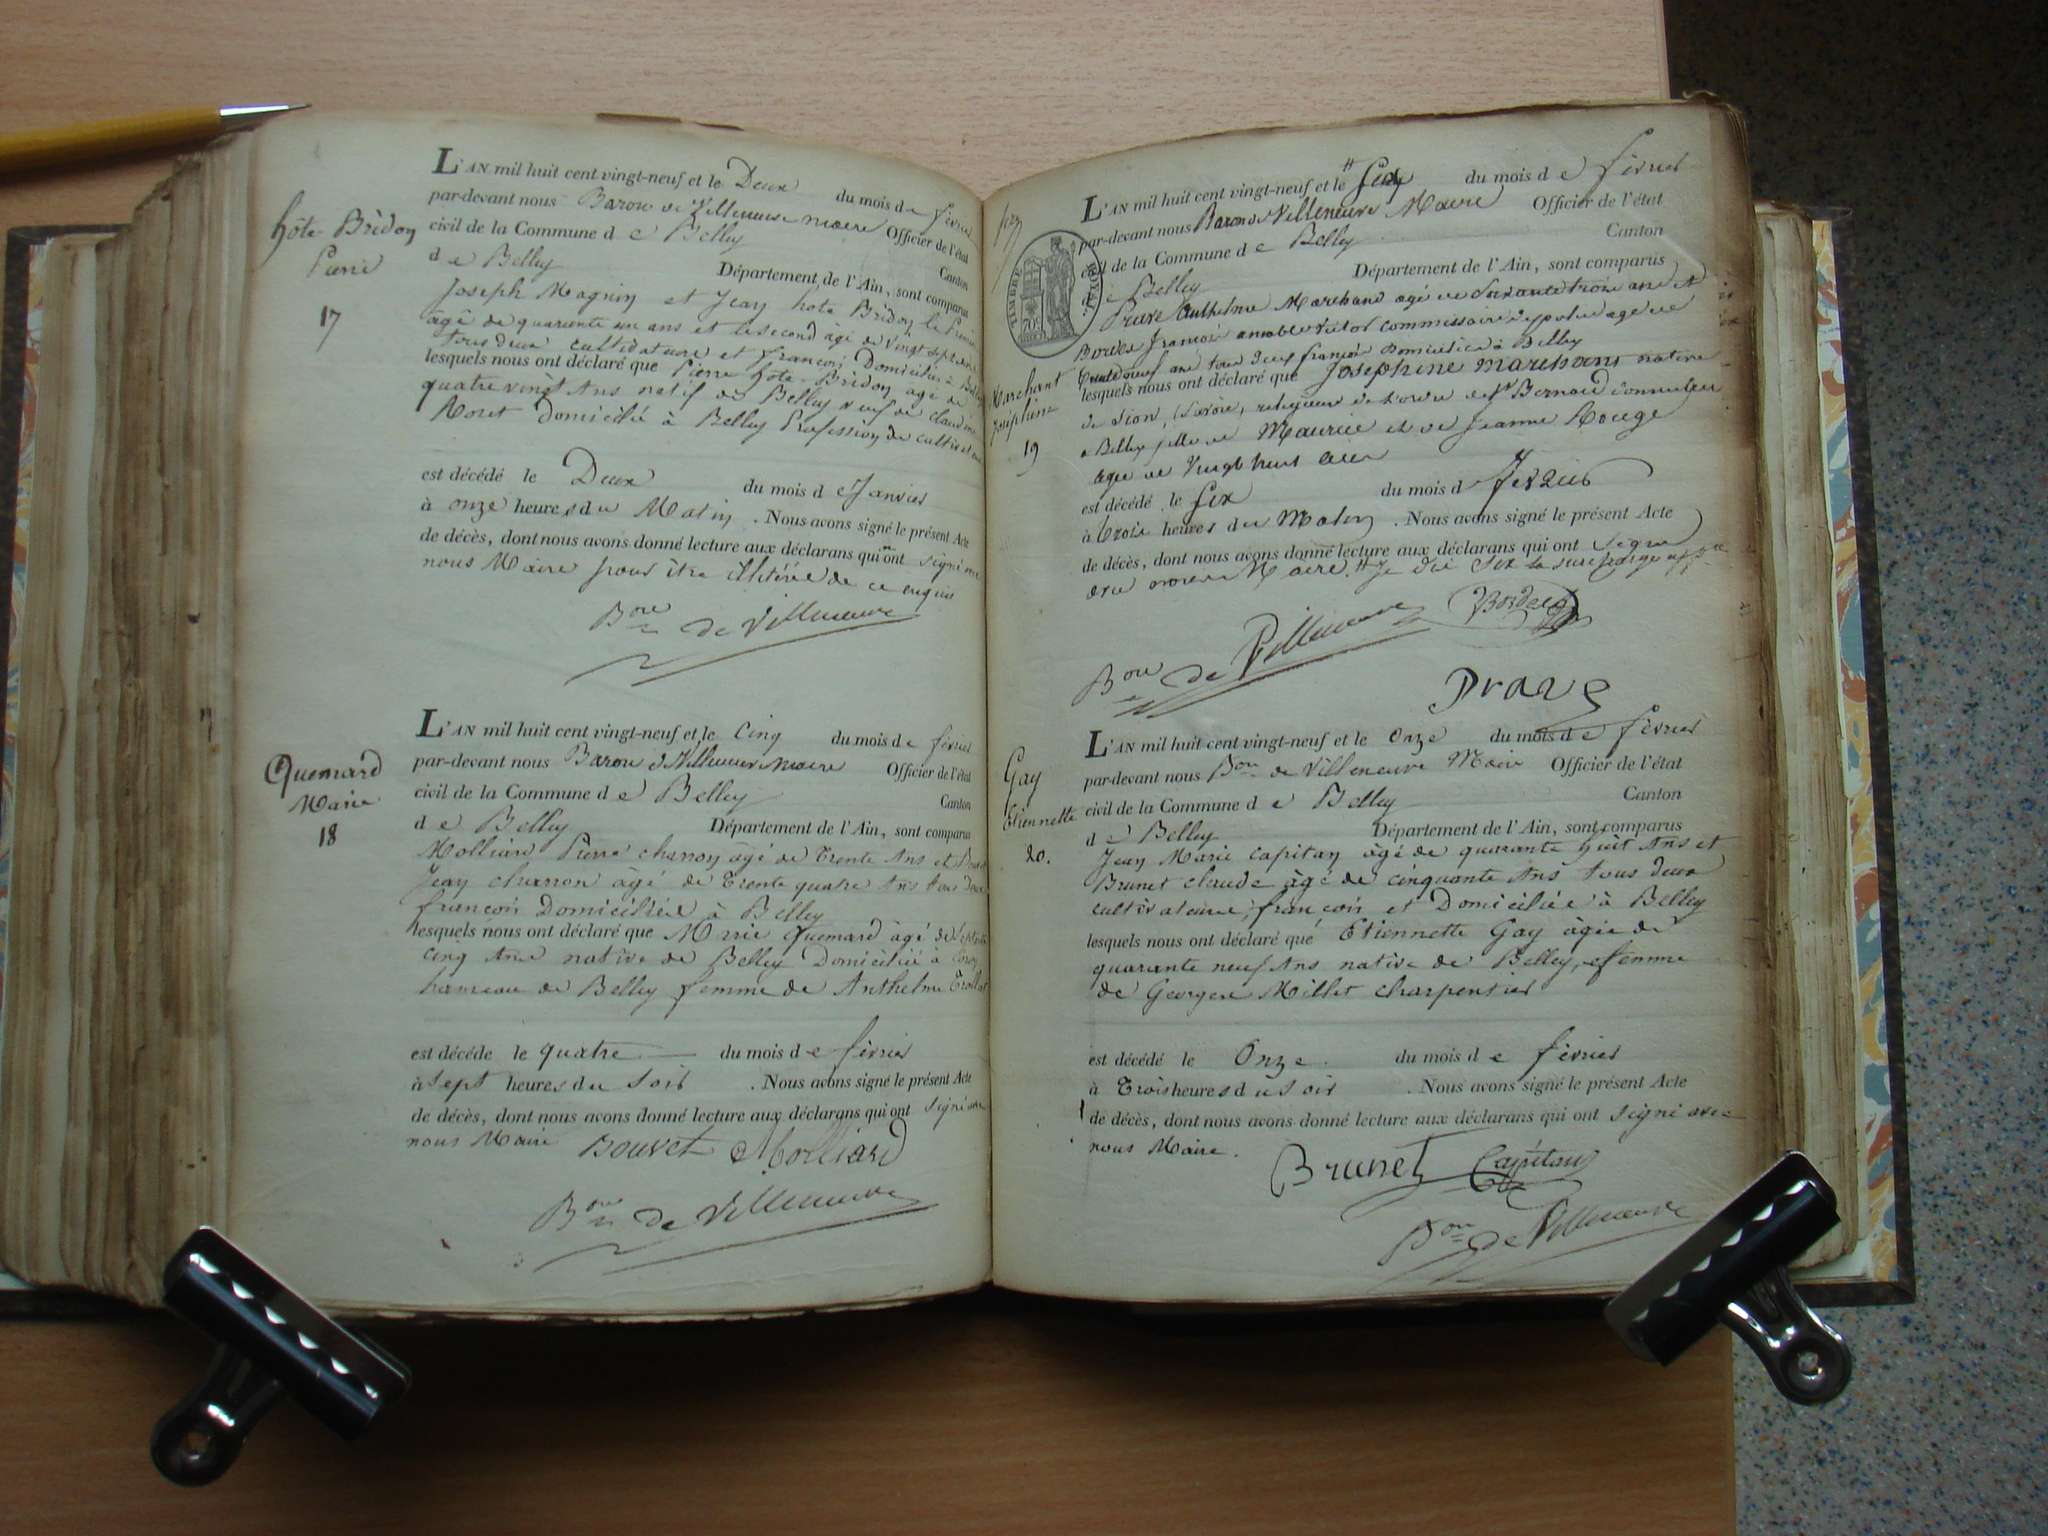 hôte Bridon
Pierre
17
L'AN mil huit cent vingt-neuf et le Deux du mois de février
par-devant nous Baron de Villeneuve maire Officier de l'état
civil de la Commune de Belley Canton
de Belley Département de l'Ain, sont comparus
Joseph Magnin et Jean hote Bridon le Premier
âgé de quarante un ans et le second âgé de vingt sept ans
tous deux cultivateurs et françois Domiciliés à Belley
lesquels nous ont déclaré que Pierre hôte Bridon agé de
quatre vingt Ans natif de Belley veuf de claudine
Domicilié à Belley Profession de cultivateur
est décédé le Deux du mois de Janvier
à onze heures du Matin. Nous avons signé le présent Acte
de décès, dont nous avons donné lecture aux déclarans qui n'ont signé
nous Maire pour être illitérés de ce enquis
Bon de Villeneuve
Quemard
Marie
18
L'AN mil huit cent vingt-neuf et le Cinq du mois de février
par-devant nous Baron de Villeneuve maire Officier de l'état
civil de la Commune de Belley Canton
de Belley Département de l'Ain, sont comparus
Molliard Pierre charron âgé de Trente Ans et
Jean charron âgé de Trente quatre Ans tous deux
françois Domiciliés à Belley
lesquels nous ont déclaré que Marie Quemard âgé de
cinq Ans native de Belley Domicilié à
hameau de Belley femme de Anthelme
est décédé le quatre du mois de février
à sept heures du Soir. Nous avons signé le présent Acte
de décès, dont nous avons donné lecture aux déclarans qui ont signé avec
nous Maire
Bouvet Molliard
Bon de Villeneuve
TIMBRE ROYAL
Marchant
Joséphine
19
L'AN mil huit cent vingt-neuf et le # Six du mois de février
par-devant nous Baron de Villeneuve Maire Officier de l'état
civil de la Commune de Belley Canton
de Belley Département de l'Ain, sont comparus
Anthelme Marchand agé de Soixante trois ans et
françois commissaire de police agé de
Trente neuf ans tous deux françois Domiciliés à Belley
lesquels nous ont déclaré que Josephine marchans native
de (Savoie, religieuse de l'ordre de St Bernard
à Belley fille de Maurice et de Jeanne Rouge
agée de Vingt huit ans
est décédé le six du mois d février
à trois heures du Matin. Nous avons signé le présent Acte
de décès, dont nous avons donné lecture aux déclarans qui ont signé
avec nous Maire. # Je dis Six la surcharge
Bon de Villeneuve
Prave
Gay
Etiennette
20.
L'AN mil huit cent vingt-neuf et le Onze du mois de février
par-devant nous Bon de Villeneuve Maire Officier de l'état
civil de la Commune de Belley Canton
de Belley Département de l'Ain, sont comparus
Jean Marie Capitan âgé de quarante huit Ans et
Brunet Claude âgé de cinquante Ans tous deux
cultivateurs, françois et Domiciliés à Belley
lesquels nous ont déclaré que Etiennette Gay âgée de
quarante neuf Ans native de Belley, femme
de Georges Millet charpentier
est décédé le Onze du mois de février
à Trois heures du Soir. Nous avons signé le présent Acte
de décès, dont nous avons donné lecture aux déclarans qui ont signé avec
nous Maire.
Brunet Capitan
Bon de Villeneuve